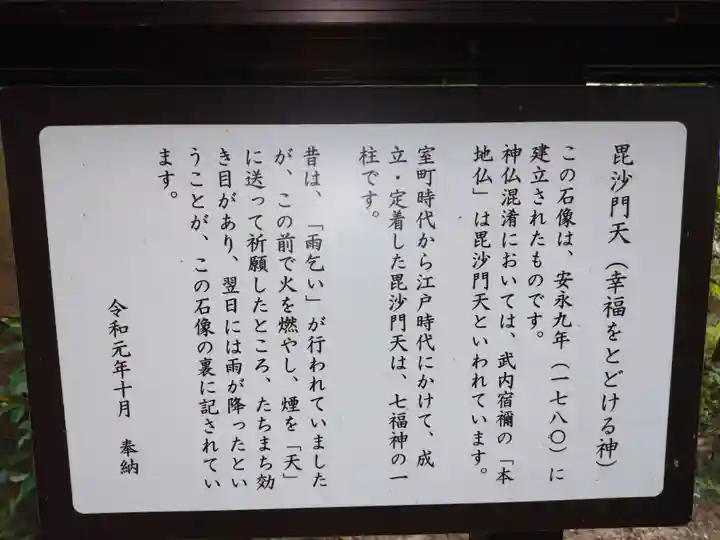 毘沙門天（幸福をとどける神）
この石像は、安永九年（一七八〇）に
建立されたものです。
神仏混淆においては、武内宿禰の「本
地仏」は毘沙門天といわれています。
室町時代から江戸時代にかけて、成
立・定着した毘沙門天は、七福神の一
柱です。
昔は、「雨乞い」が行われていました
が、この前で火を燃やし、煙を「天」
に送って祈願したところ、たちまち効
き目があり、翌日には雨が降ったとい
うことが、この石像の裏に記されてい
ます。
令和元年十月　奉納